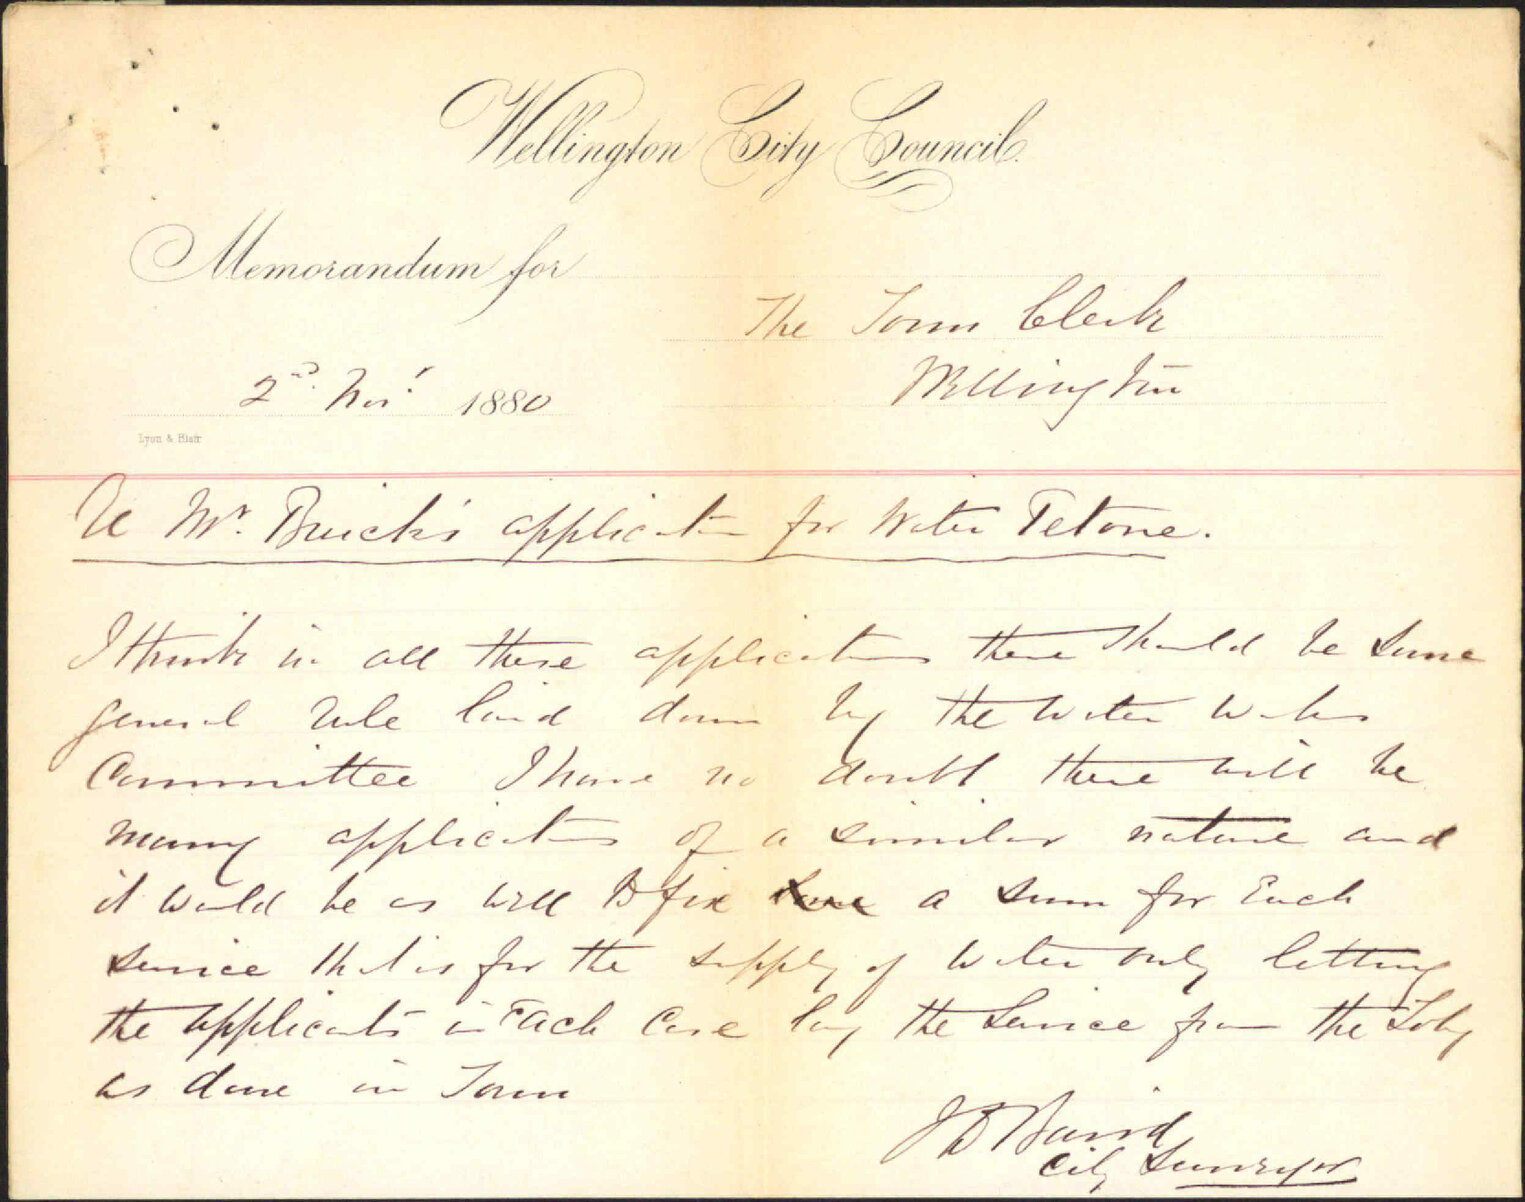 Wellington City Council.
Memorandum for
The Town Clerk
Wellington
2nd Nov' 1880
Lyon & Blair
Re Mr. Buick's application for Water Petone.
I think in all these applications there should be some
general rule laid down by the Water Works
Committee I have no doubt there will be
many applications of a similar nature and
it would be as well to fix a sum for Each
service that is for the supply of water only letting
the applicants in Each Case lay the Service from the Toby
as done in Town
J D Baird
City Surveyor